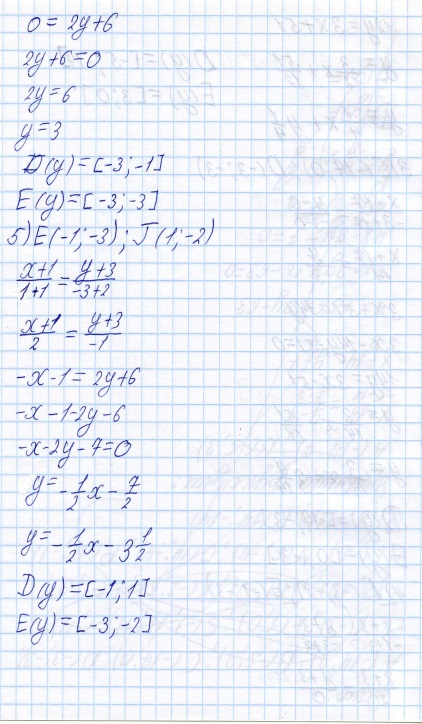 0 = 2y+6
2y+6=0
2y=6
y=3
D(y)=[-3;-1]
E(y)=[-3;-3]
5) E(-1;-3); Г(1;-2)
x+1/1+1 = y+3/-3+2
x+1/2 = y+3/-1
-x-1=2y+6
-x-1-2y-6
-x-2y-7=0
y=-1/2x-7/2
y=-1/2x-3 1/2
D(y)=[-1;1]
E(y)=[-3;-2]